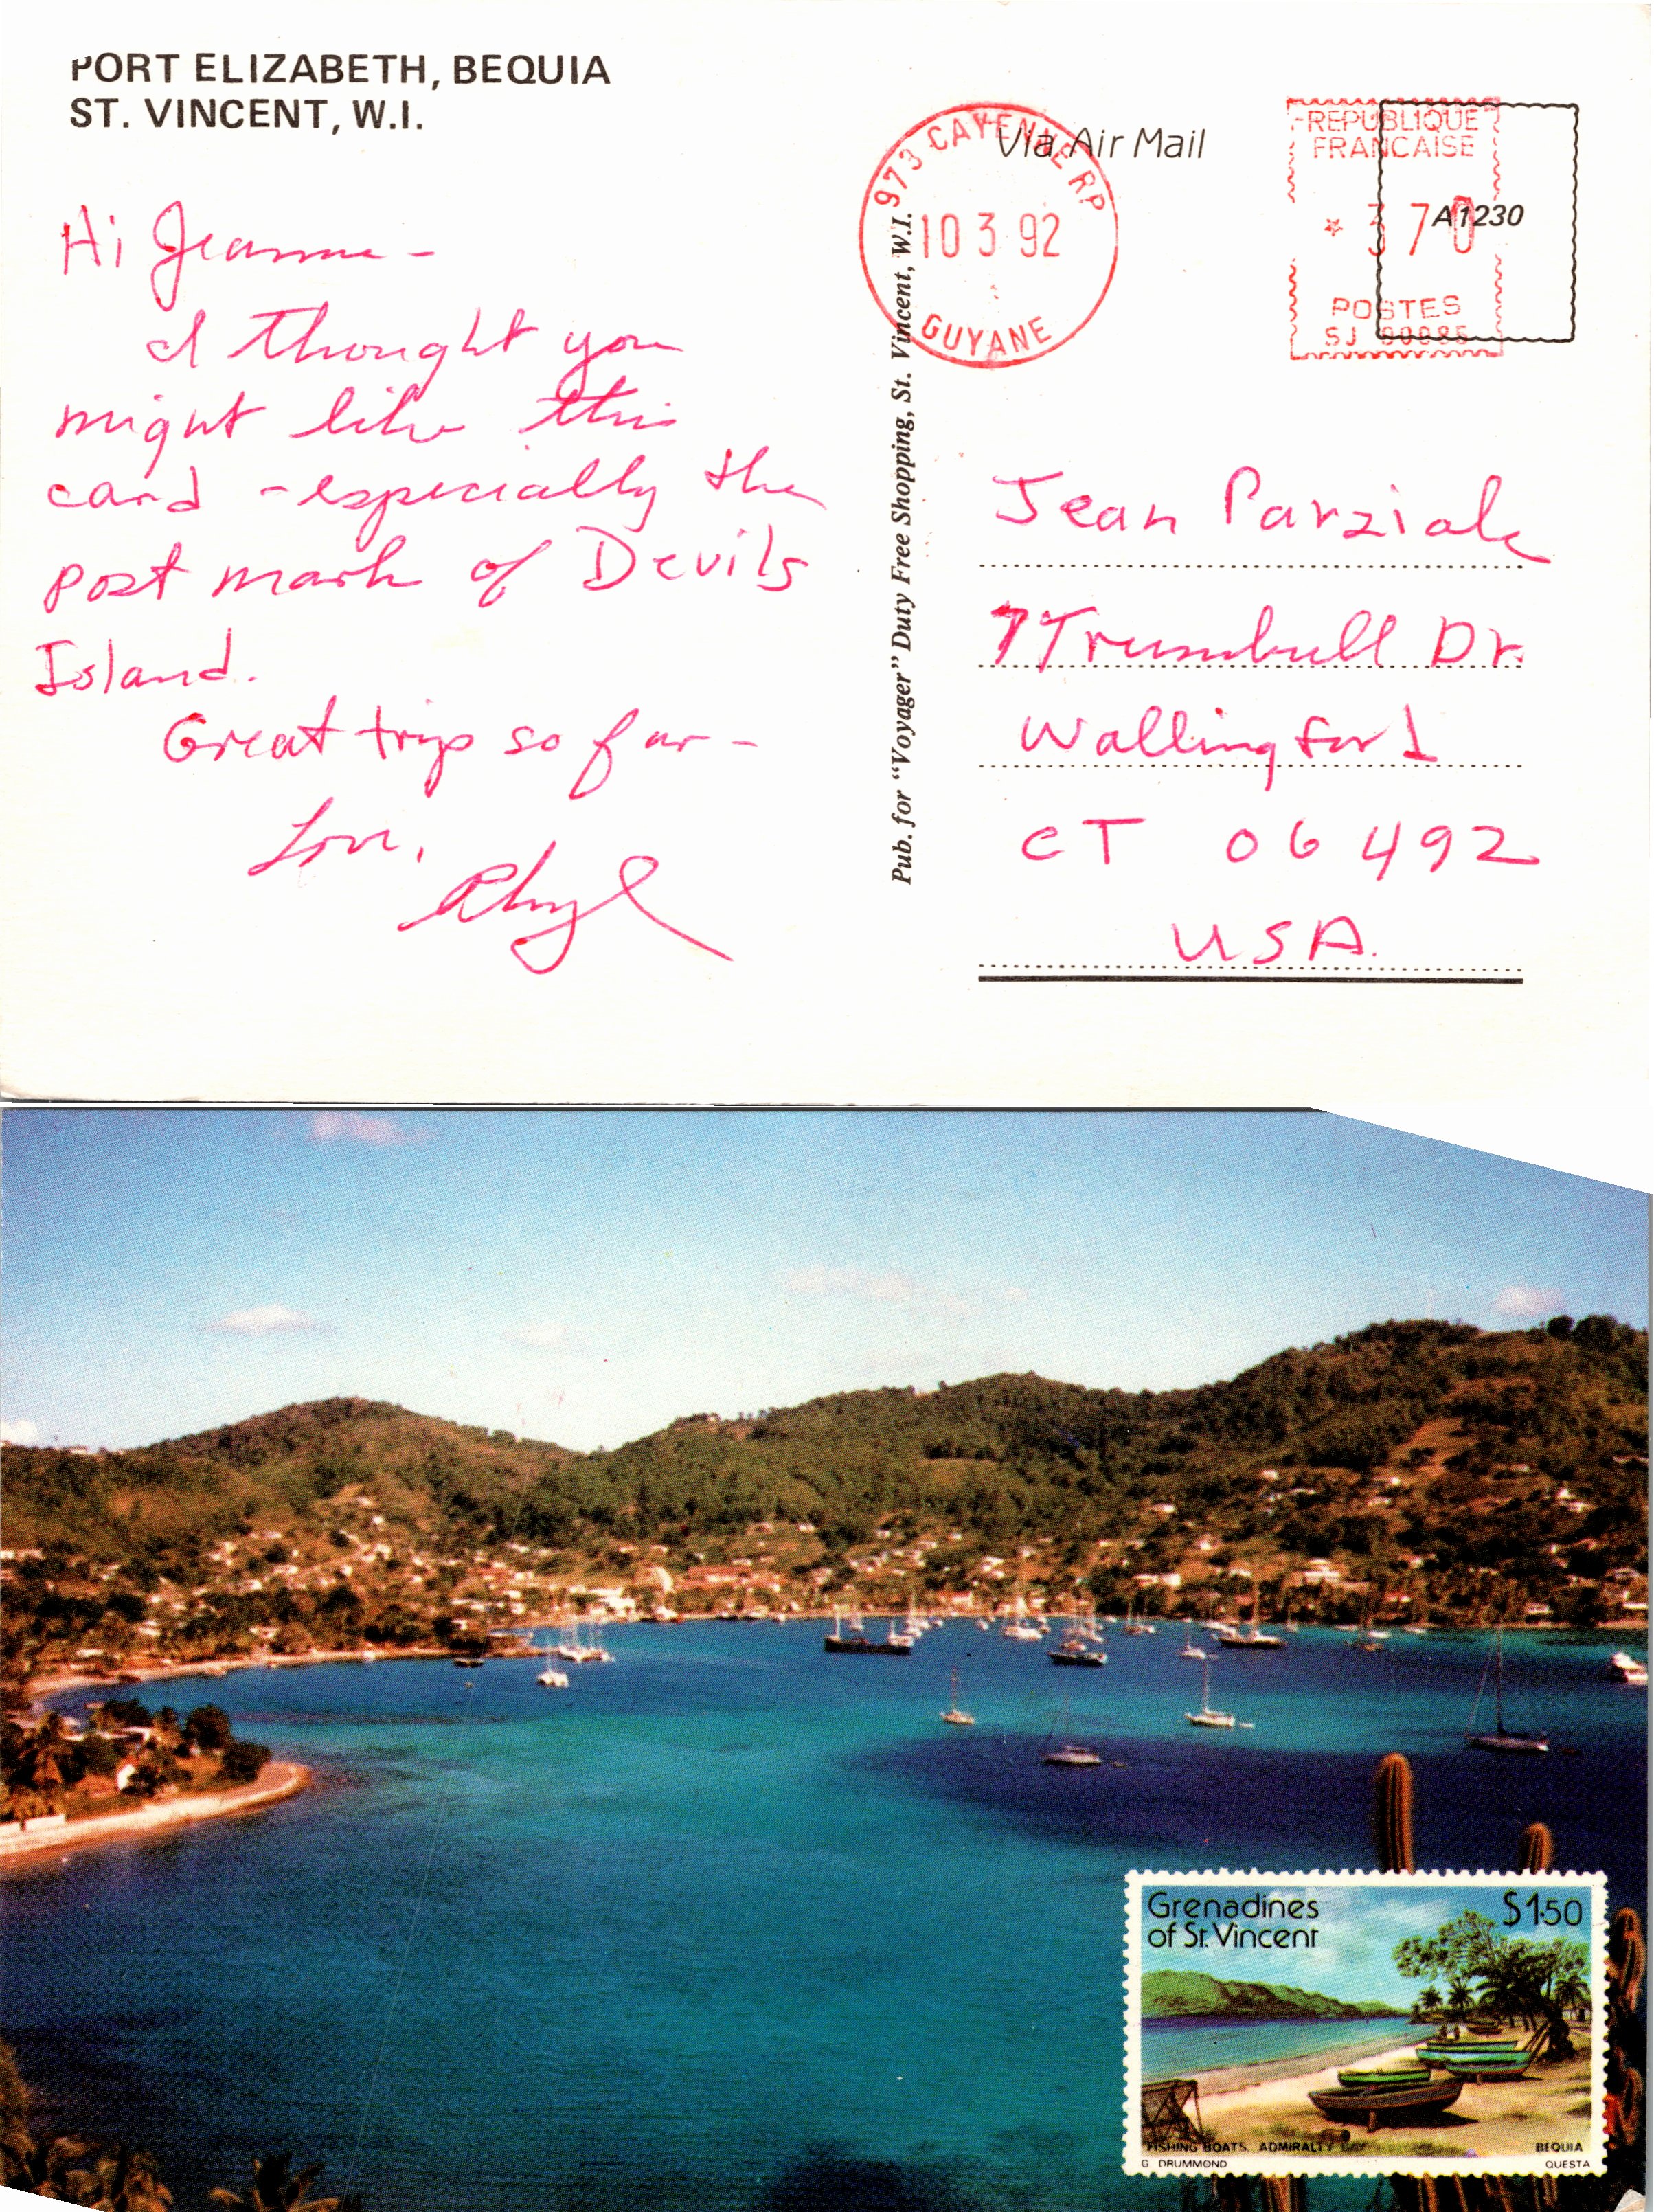 PORT ELIZABETH, BEQUIA
ST. VINCENT, W.I.
Hi Jeanne -
I thought you
might like this
card - especially the
post mark of Devils
Island.
Great trip so far -
Love,
Pub. for "Voyager" Duty Free Shopping, St. Vincent, W.I.
973 CAYENNE RP
10 3 92
GUYANE
Via Air Mail
REPUBLIQUE
FRANCAISE
* 3 70
A1230
POSTES
SJ
Jean Parziale
7 Trumbull Dr.
Wallingford
CT 06492
USA.
Grenadines
of St. Vincent
$1.50
FISHING BOATS, ADMIRALTY BAY
BEQUIA
G DRUMMOND
QUESTA